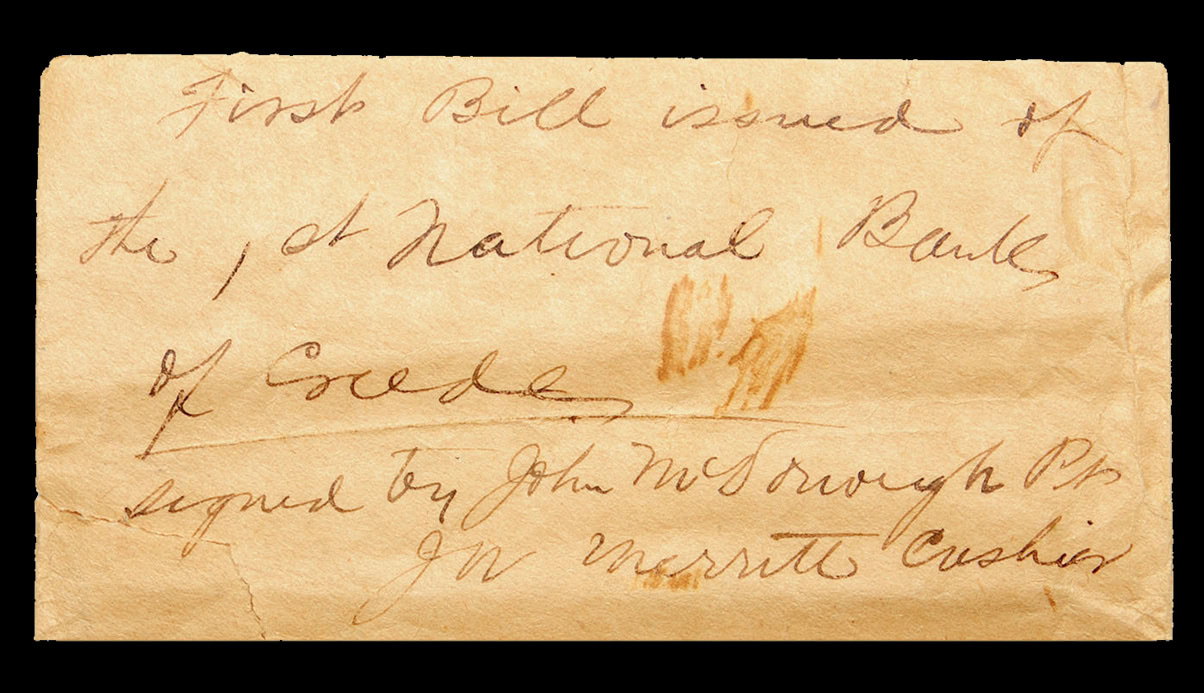 First Bill issued of
the 1st National Bank
of Creede
signed by John McDonough Pt
JW Merritt Cashier